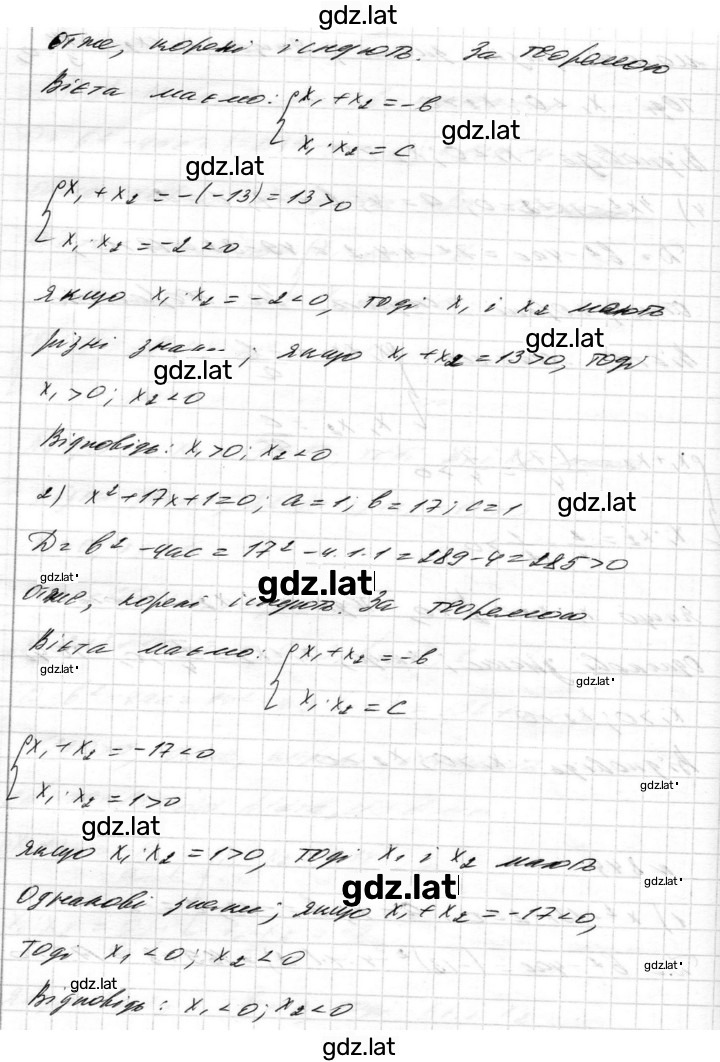 gdz.lat
отже, корені існують. За теоремою
Вієта маємо: { x₁ + x₂ = -b
gdz.lat
x₁ · x₂ = c
gdz.lat
{ x₁ + x₂ = -(-13) = 13 > 0
x₁ · x₂ = -2 < 0
якщо x₁ · x₂ = -2 < 0, тоді x₁ і x₂ мають
gdz.lat
різні знаки; якщо x₁ + x₂ = 13 > 0, тоді
gdz.lat
x₁ > 0; x₂ < 0
Відповідь: x₁ > 0; x₂ < 0
2) x² + 17x + 1 = 0; a = 1; b = 17; c = 1
gdz.lat
D = b² - 4ac = 17² - 4·1·1 = 289 - 4 = 285 > 0
gdz.lat
gdz.lat
отже, корені існують. За теоремою
Вієта маємо: { x₁ + x₂ = -b
gdz.lat
gdz.lat
x₁ · x₂ = c
{ x₁ + x₂ = -17 < 0
gdz.lat
x₁ · x₂ = 1 > 0
gdz.lat
якщо x₁ · x₂ = 1 > 0, тоді x₁ і x₂ мають
gdz.lat
gdz.lat
однакові знаки; якщо x₁ + x₂ = -17 < 0,
тоді x₁ < 0; x₂ < 0
gdz.lat
gdz.lat
Відповідь: x₁ < 0; x₂ < 0
gdz.lat